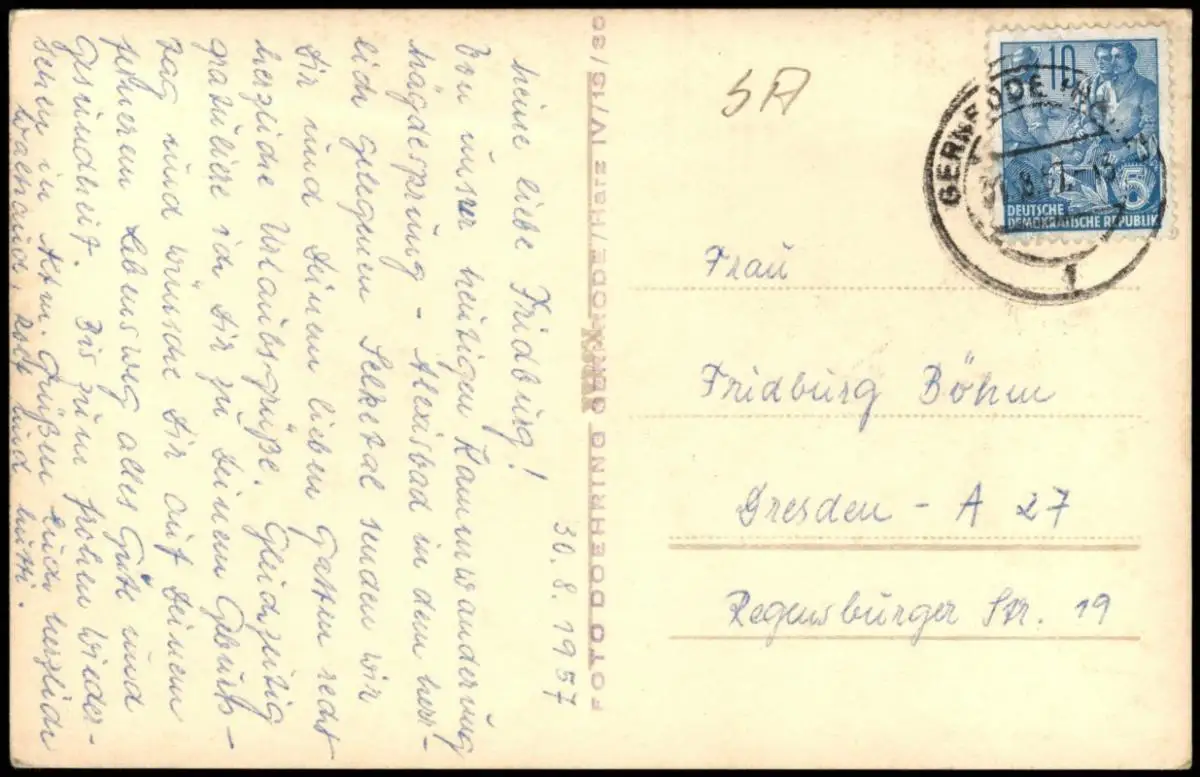 30.8.1957
Meine liebe Fridburg!
Von unsrer heutigen Kammwanderung
Mägdesprung - Alexisbad in dem herr-
lich gelegenen Selketal senden wir
Dir und Deinem lieben Gatten recht
herzliche Urlaubsgrüße. Gleichzeitig
gratuliere ich Dir zu Deinem Geburts-
tag und wünsche Dir auf Deinem
ferneren Lebensweg alles Gute und
Gesundheit. Bis zum frohen Wieder-
sehen in Grüßen Euch herzlich
und Mutti.
FOTO DOEHRING GERNRODE/Harz IV/15/30
SA
10
5
DEUTSCHE
DEMOKRATISCHE REPUBLIK
GERNRODE
30.8.57.-15
1
Frau
Fridburg Böhm
Dresden - A 27
Regensburger Str. 19